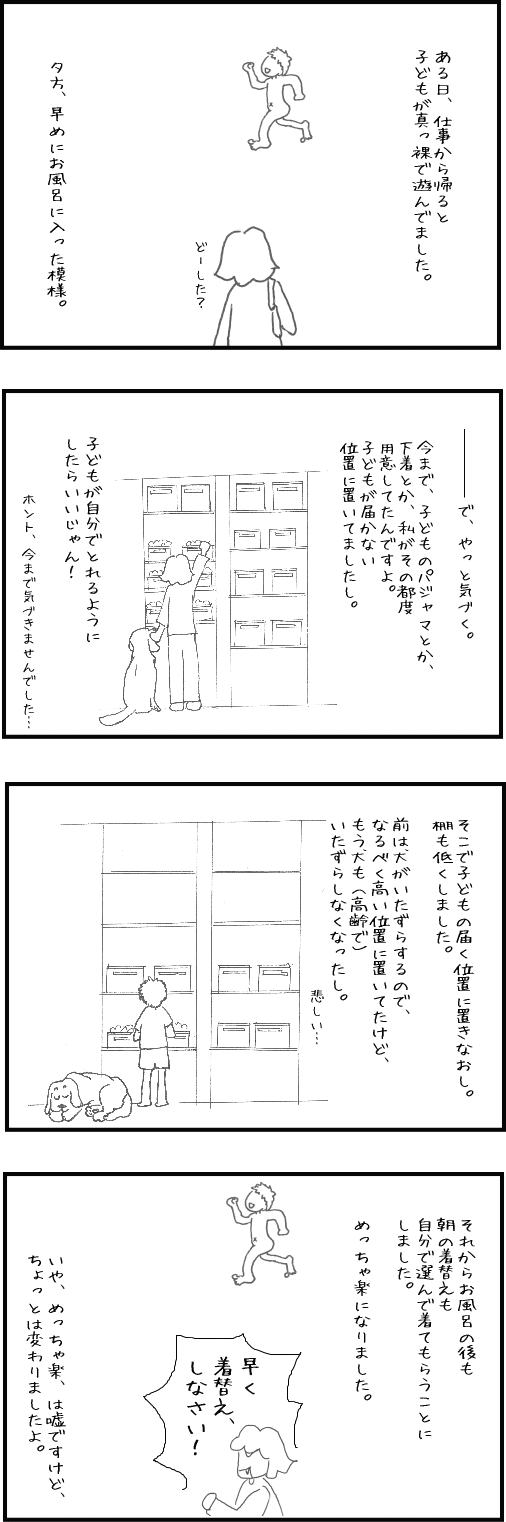 ある日、仕事から帰ると
子どもが真っ裸で遊んでました。
どーした?
夕方、早めにお風呂に入った模様。
――で、やっと気づく。
今まで、子どものパジャマとか、
下着とか、私がその都度
用意してたんですよ。
子どもが届かない
位置に置いてましたし。
子どもが自分でとれるように
したらいいじゃん!
ホント、今まで気づきませんでした…
そこで子どもの届く位置に置きなおし。
棚も低くしました。
前は犬がいたずらするので、
なるべく高い位置に置いてたけど、
もう犬も(高齢で)
いたずらしなくなったし。
悲しい…
それからお風呂の後も
朝の着替えも
自分で選んで着てもらうことに
しました。
めっちゃ楽になりました。
早く
着替え、
しなさい!
いや、めっちゃ楽、は嘘ですけど、
ちょっとは変わりましたよ。